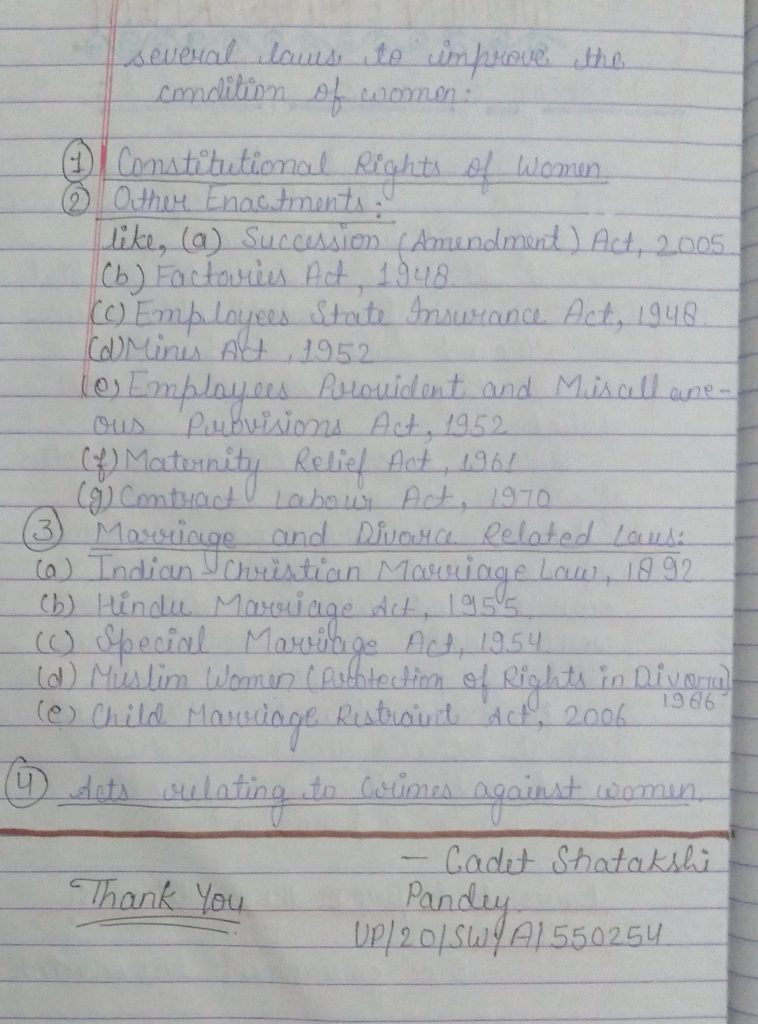 several laws to improve the
condition of women:
① Constitutional Rights of Women
② Other Enactments:
like, (a) Succession (Amendment) Act, 2005
(b) Factories Act, 1948.
(c) Employees State Insurance Act, 1948.
(d) Mines Act, 1952
(e) Employees Provident and Miscellane-
ous Provisions Act, 1952
(f) Maternity Relief Act, 1961
(g) Contract Labour Act, 1970
③ Marriage and Divorce Related Laws:
(a) Indian Christian Marriage Law, 1892
(b) Hindu Marriage Act, 1955
(c) Special Marriage Act, 1954
(d) Muslim Women (Protection of Rights in Divorce)
1986
(e) Child Marriage Restraint Act, 2006
④ Acts relating to Crimes against women.
— Cadet Shatakshi
Thank You Pandey.
UP/20/SW/A/550254